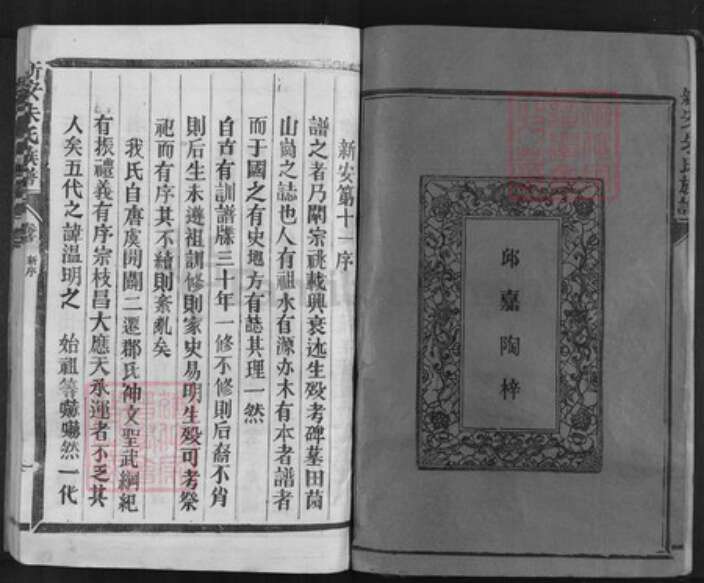 邱嘉陶梓
新安第十一序
譜之者乃闡宗祧載興衰述生殁考碑墓田茵
山崗之誌也人有祖水有源亦木有本者譜者
而于國之有史地方有誌其理一然
自古有訓譜牒三十年一修不修則后裔不肖
則后生未遵祖訓修則家史易明生殁可考祭
祀而有序其不績則紊亂矣
我氏自唐虞開闢二遷郡氏神文聖武綱紀
有振禮義有序宗枝昌大應天承運者不乏其
人矣五代之諱温明之 始祖等赫赫然一代
新安朱氏族譜
新序